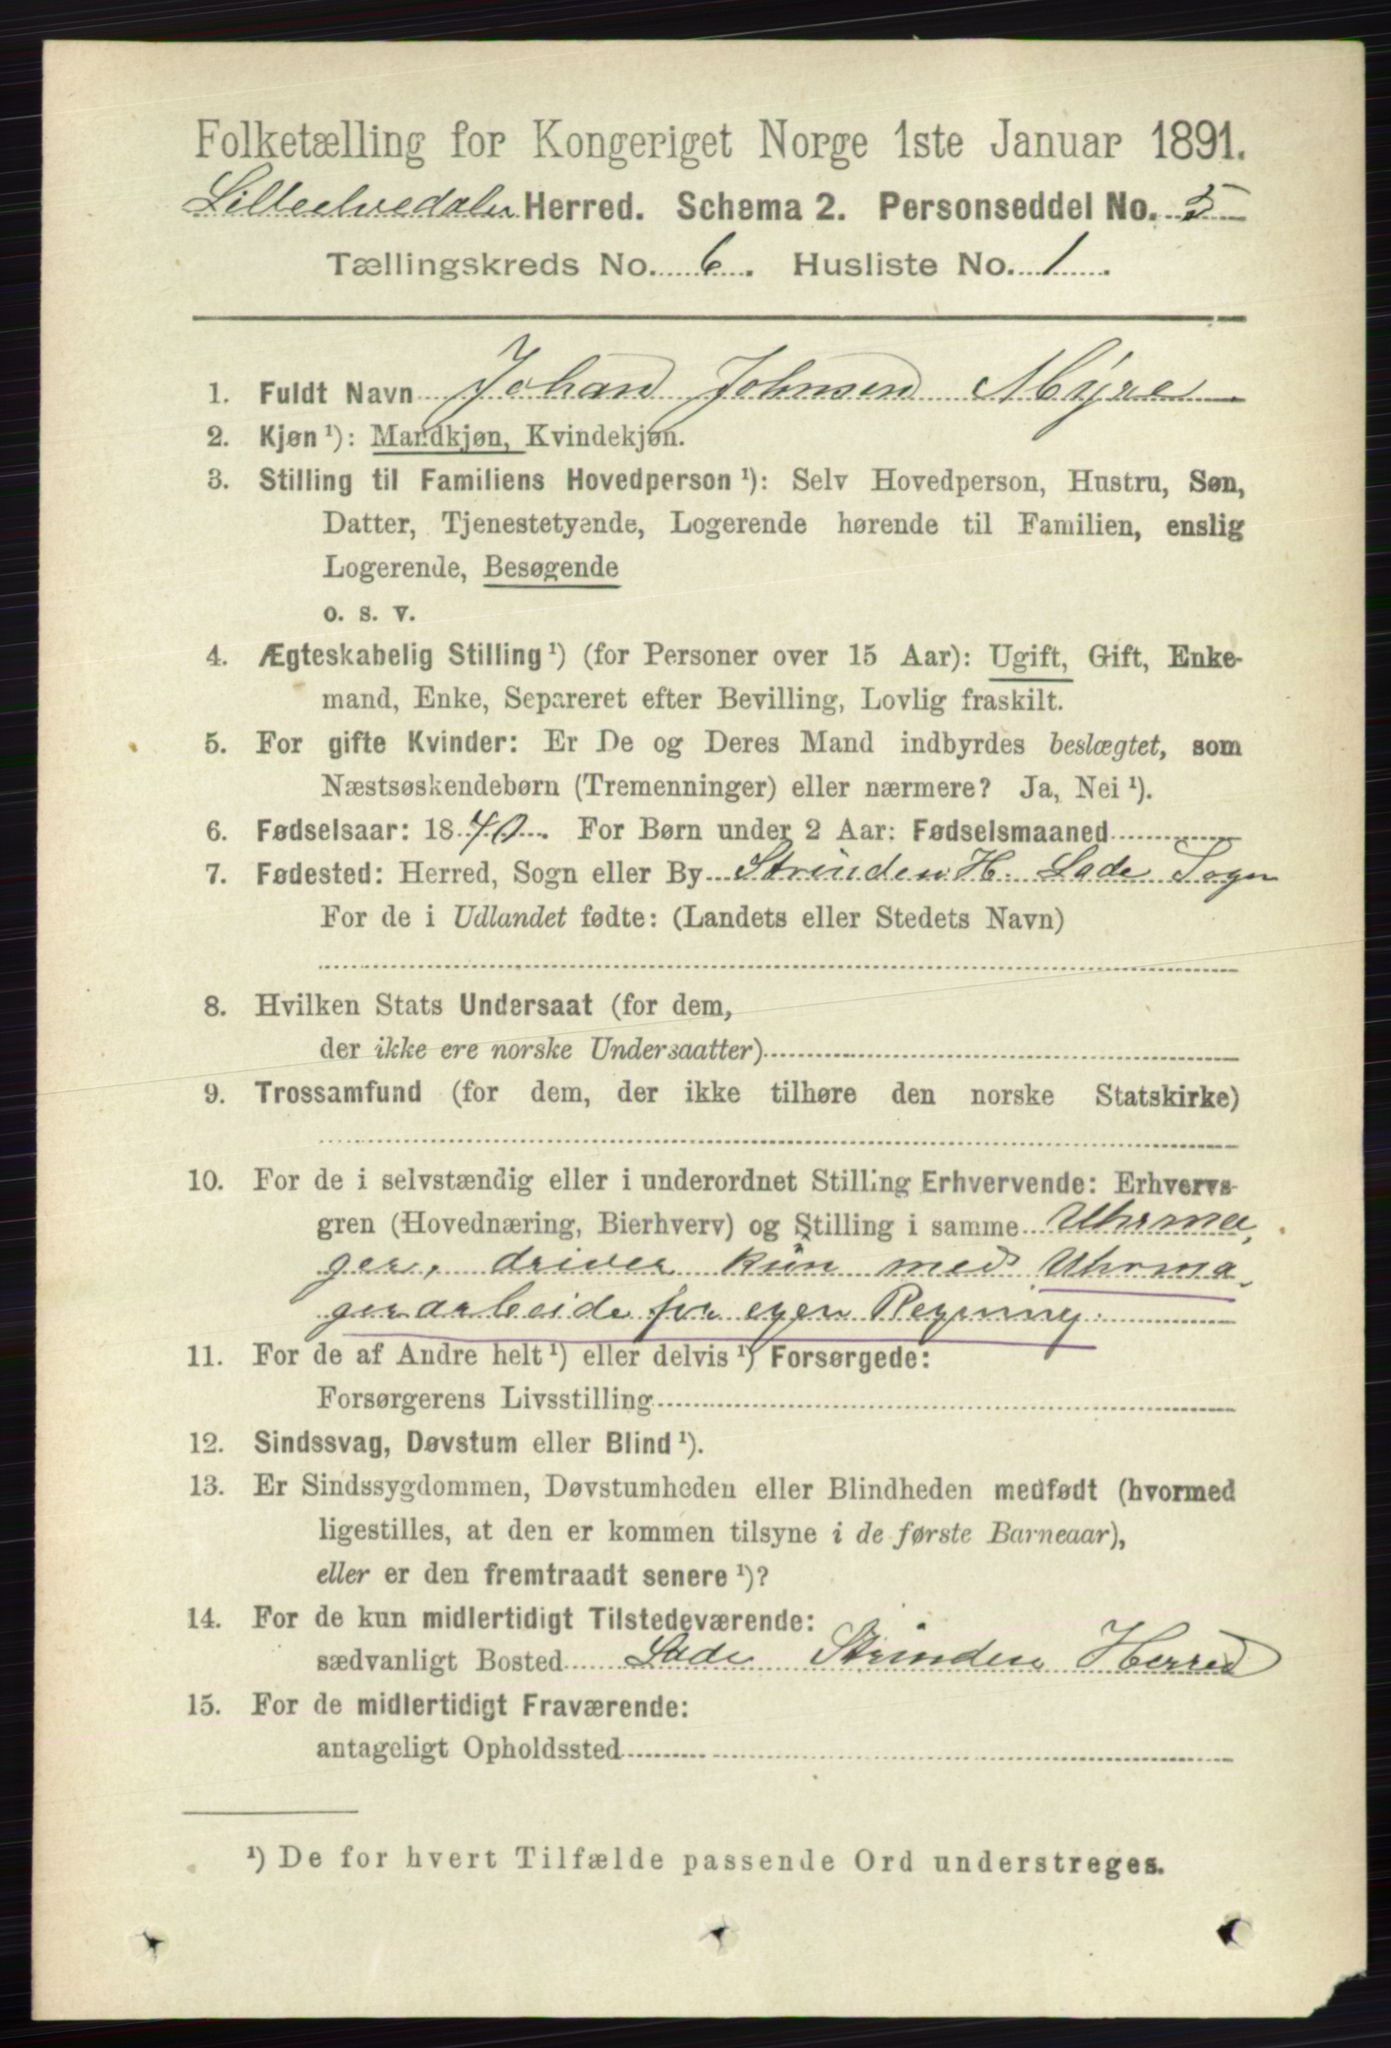 Folketælling for Kongeriget Norge 1ste Januar 1891.
Lilleelvedalen Herred. Schema 2. Personseddel No. 5
Tællingskreds No. 6. Husliste No. 1.
1. Fuldt Navn Johan Johnsen Myre
2. Kjøn ¹): Mandkjøn, Kvindekjøn.
3. Stilling til Familiens Hovedperson ¹): Selv Hovedperson, Hustru, Søn,
Datter, Tjenestetyende, Logerende hørende til Familien, enslig
Logerende, Besøgende
o. s. v.
4. Ægteskabelig Stilling ¹) (for Personer over 15 Aar): Ugift, Gift, Enke-
mand, Enke, Separeret efter Bevilling, Lovlig fraskilt.
5. For gifte Kvinder: Er De og Deres Mand indbyrdes beslægtet, som
Næstsøskendebørn (Tremenninger) eller nærmere? Ja, Nei ¹).
6. Fødselsaar: 1840. For Børn under 2 Aar: Fødselsmaaned
7. Fødested: Herred, Sogn eller By Strinden H. Lade Sogn
For de i Udlandet fødte: (Landets eller Stedets Navn)
8. Hvilken Stats Undersaat (for dem,
der ikke ere norske Undersaatter)
9. Trossamfund (for dem, der ikke tilhøre den norske Statskirke)
10. For de i selvstændig eller i underordnet Stilling Erhvervende: Erhvervs-
gren (Hovednæring, Bierhverv) og Stilling i samme Uhrma
ger, driver kun med Uhrma
gerarbeide for egen Regning.
11. For de af Andre helt ¹) eller delvis ¹) Forsørgede:
Forsørgerens Livsstilling
12. Sindssvag, Døvstum eller Blind ¹).
13. Er Sindssygdommen, Døvstumheden eller Blindheden medfødt (hvormed
ligestilles, at den er kommen tilsyne i de første Barneaar),
eller er den fremtraadt senere ¹)?
14. For de kun midlertidigt Tilstedeværende:
sædvanligt Bosted Lade Strinden Herred
15. For de midlertidigt Fraværende:
antageligt Opholdssted
¹) De for hvert Tilfælde passende Ord understreges.